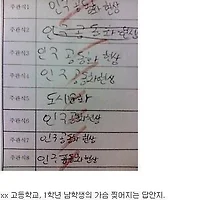 주관식1 인구 공동화 현상
주관식2 인구 공동화 현상
주관식3 인구 공동화 현상
주관식4 인구 공동화 현상
주관식5 도시화
주관식6 인구 공동화 현상
주관식7 인구 공동화 현상
주관식8 인구 공동화 현상
xx 고등학교, 1학년 남학생의 가슴 찢어지는 답안지.